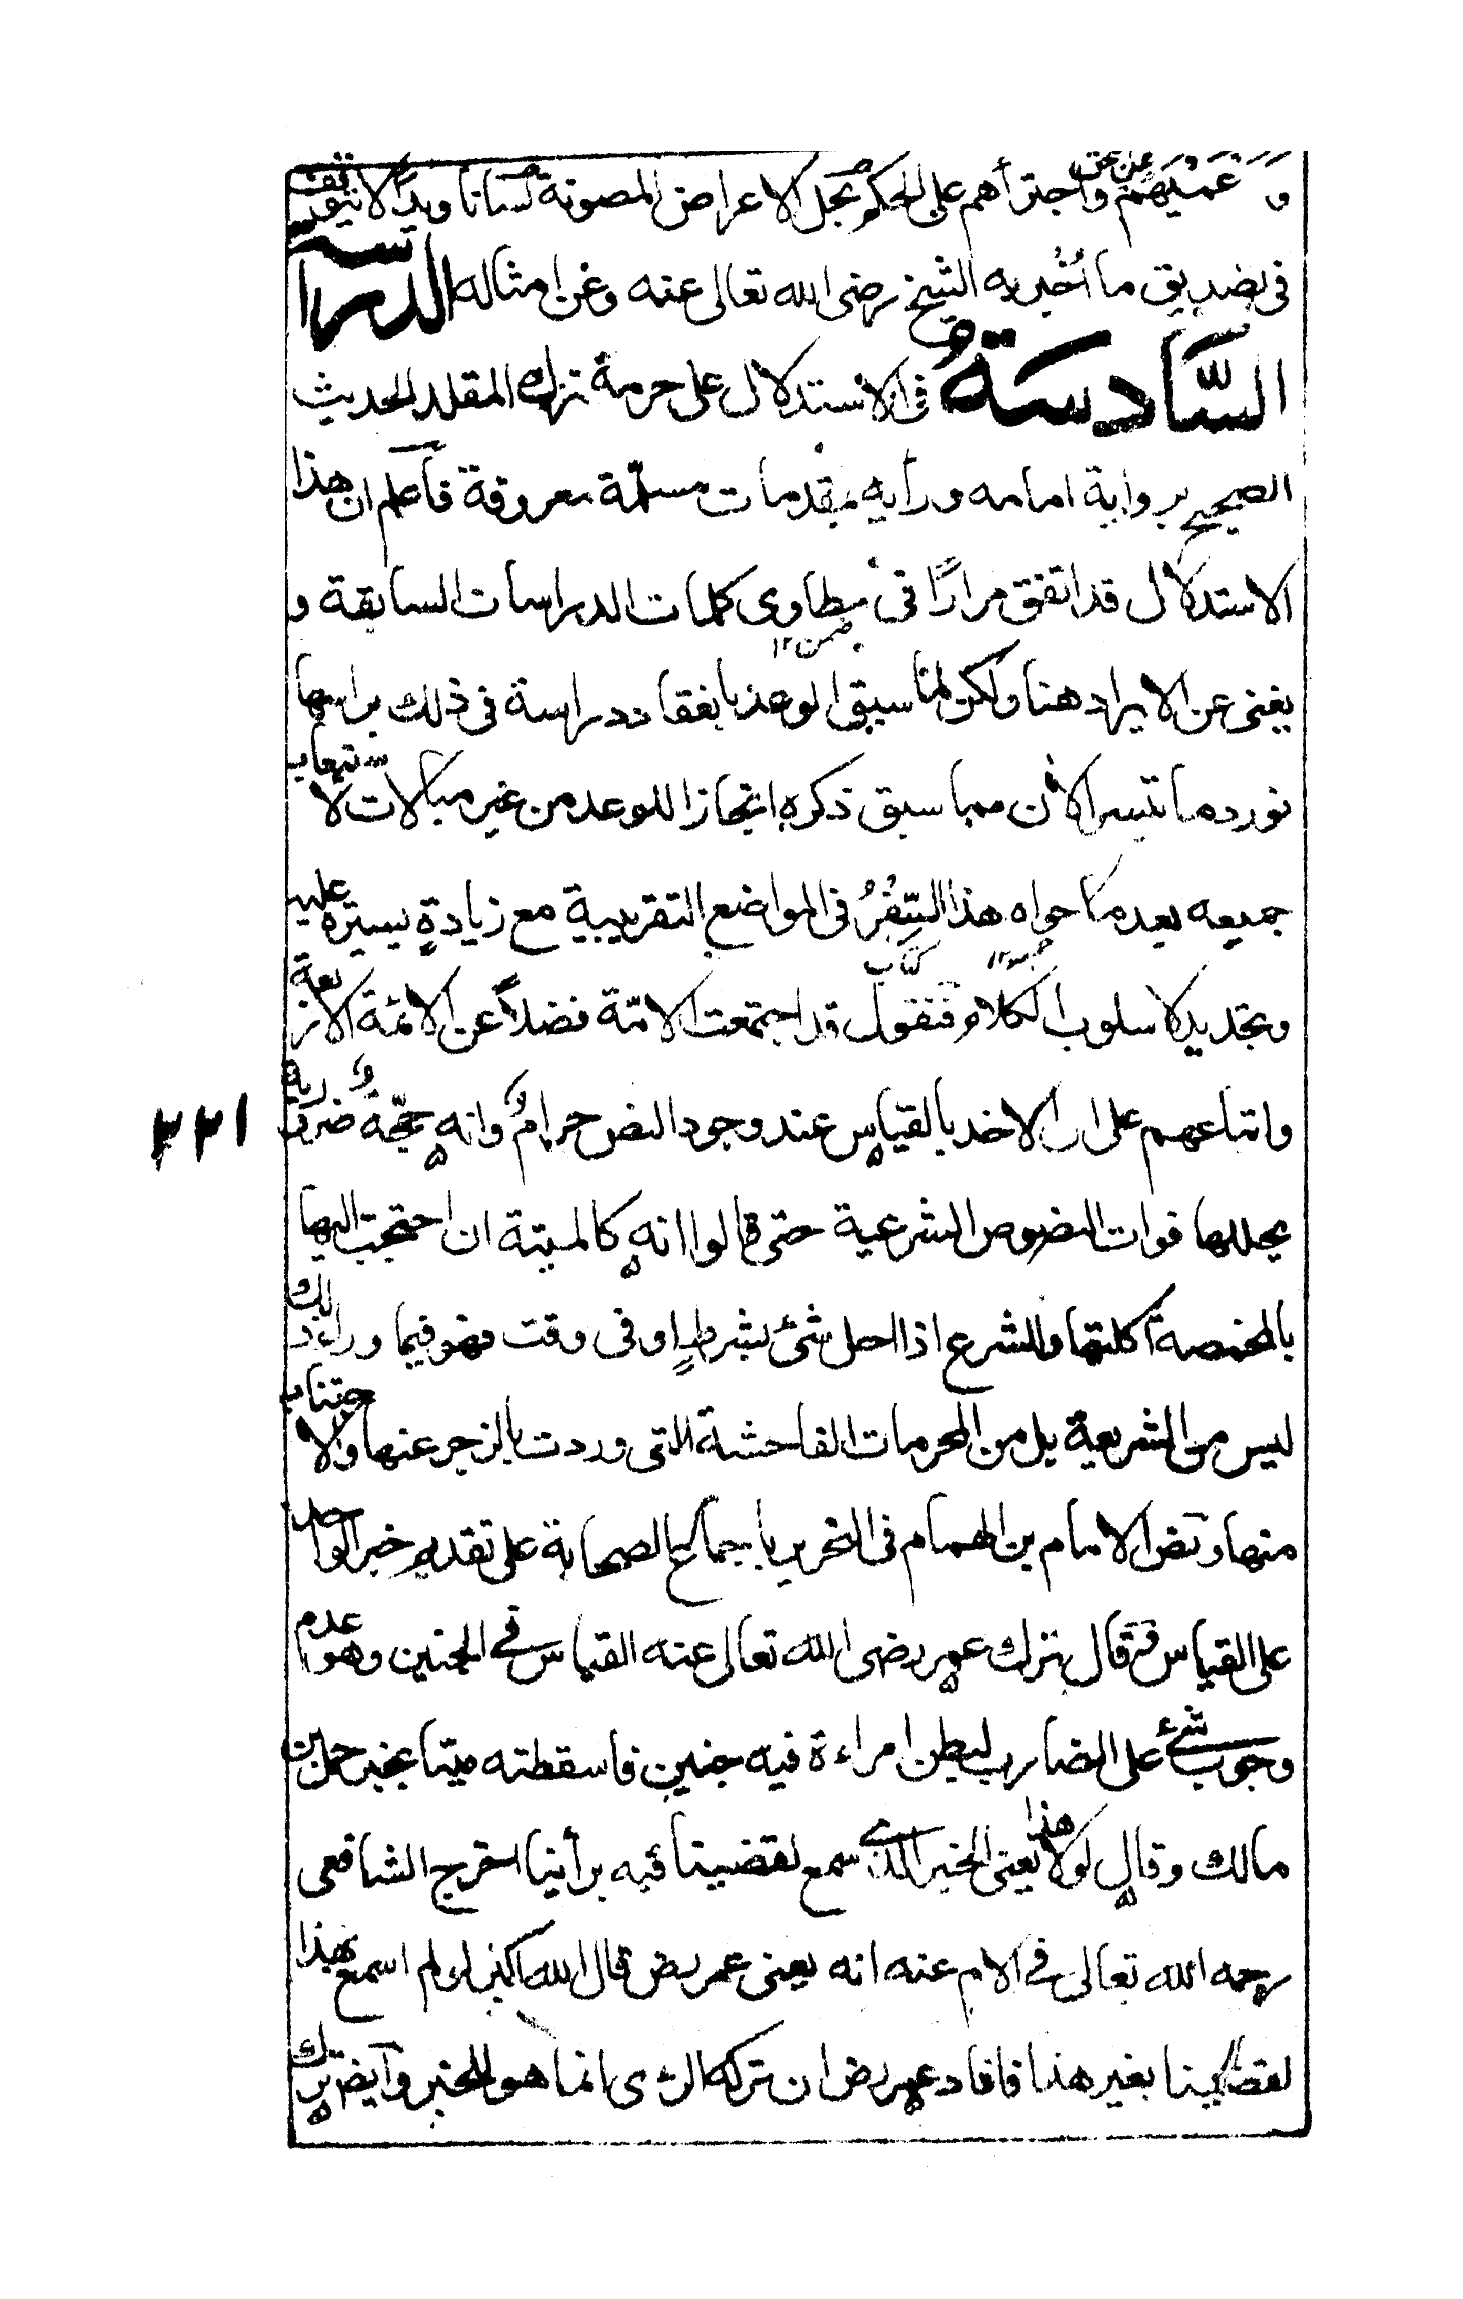 وَعَميهم عن الحق واجترأهم على الحكم بحل الاعراض المصونة لسانا ويدًا لا يتوقف
فى تصديق ما أخبر به الشيخ رضى الله تعالى عنه وعن امثاله الدراسة
السَّادسَةُ فى الاستدلال على حرمة ترك المقلد الحديث
الصحيح برواية امامه ورأيه بمقدمات مسلّمة معروفة فاعلم ان هذا
الاستدلال قد اتفق مرارًا فى مطاوى كلمات الدراسات السابقة و
ضمن ١٢
يغنى عن الايراد هنا ولكن لما سبق الوعد بانعقاد دراسة فى ذلك براسها
نورد ما تيسر الأن مما سبق ذكره انجازا للوعد من غير مبالات لاستيعاب
جميعه بعد ما حواه هذا السِّفْرُ فى المواضع التقريبية مع زيادةٍ يسيرة عليه
كتاب ١٢
وتجديد لاسلوب الكلام فنقول قد اجتمعت الامّة فضلاً عن الائمة الاربعة
واتباعهم على ان الاخذ بالقياس عند وجود النص حرامٌ وانه حجّةٌ ضرورية
٢٢١
يحللها فوات النصوص الشرعية حتى قالوا انه كالميتة ان احتجت اليها
بالمخمصة اكلتها والشرع اذا احل شئ بشرطٍ او فى وقت فهو فيما وراء ذلك
ليس من الشريعة بل من المحرمات الفاحشة التى وردت بالزجر عنها والاجتناب
منها ونص الامام بن الهمام فى التحرير باجماع الصحابة على تقديم خبر الواحد
على القياس فقال بترك عمر رضى الله تعالى عنه القياس فى الجنين وهو عدم
وجوب شئ على الضارب لبطن امراءة فيه جنين فاسقطته ميتا بخبر حمل بن
مالك وقال لولا هذا يعنى الخبر الذى سمع لقضينا فيه برأينا اخرج الشافعى
رحمه الله تعالى فى الام عنه انه يعنى عمر رض قال الله اكبر لو لم اسمع بهذا
لقضينا بغير هذا فافاد عمر رض ان تركه الرءى انما هو للخبر وايضا ترك